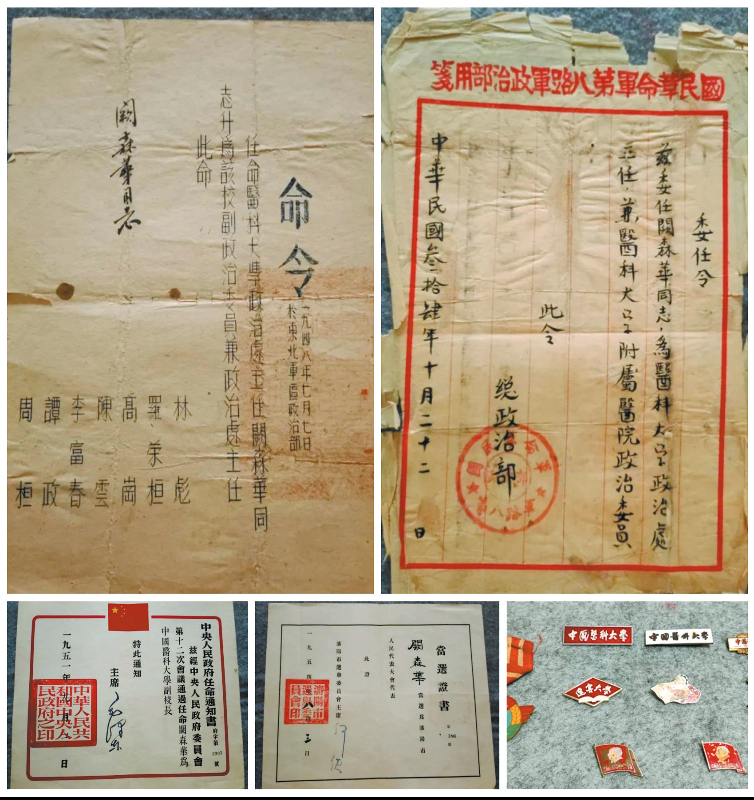 命令
一九四八年七月七日
於東北軍區政治部
任命醫科大學政治處主任闞森華同
志升為該校副政治委員兼政治處主任
此命
闞森華同志
林彪
羅榮桓
高崗
陳雲
李富春
譚政
周桓
國民革命軍第八路軍政治部用箋
委任令
茲委任闞森華同志,為醫科大学政治處
主任,兼醫科大学附屬醫院政治委員
此令
總政治部
中華民國叁拾肆年十月二十二日
中央人民政府任命通知書
茲經中央人民政府委員會
第十二次會議通過任命闞森華為
中國醫科大學副校長
特此通知
主席
一九五一年
日
當選證書
闞森華當選為瀋陽市
人民代表大會代表
此證
瀋陽市選舉委員會主席
一九五四
八
三日
中國醫科大學
中國醫科大學
延安大學